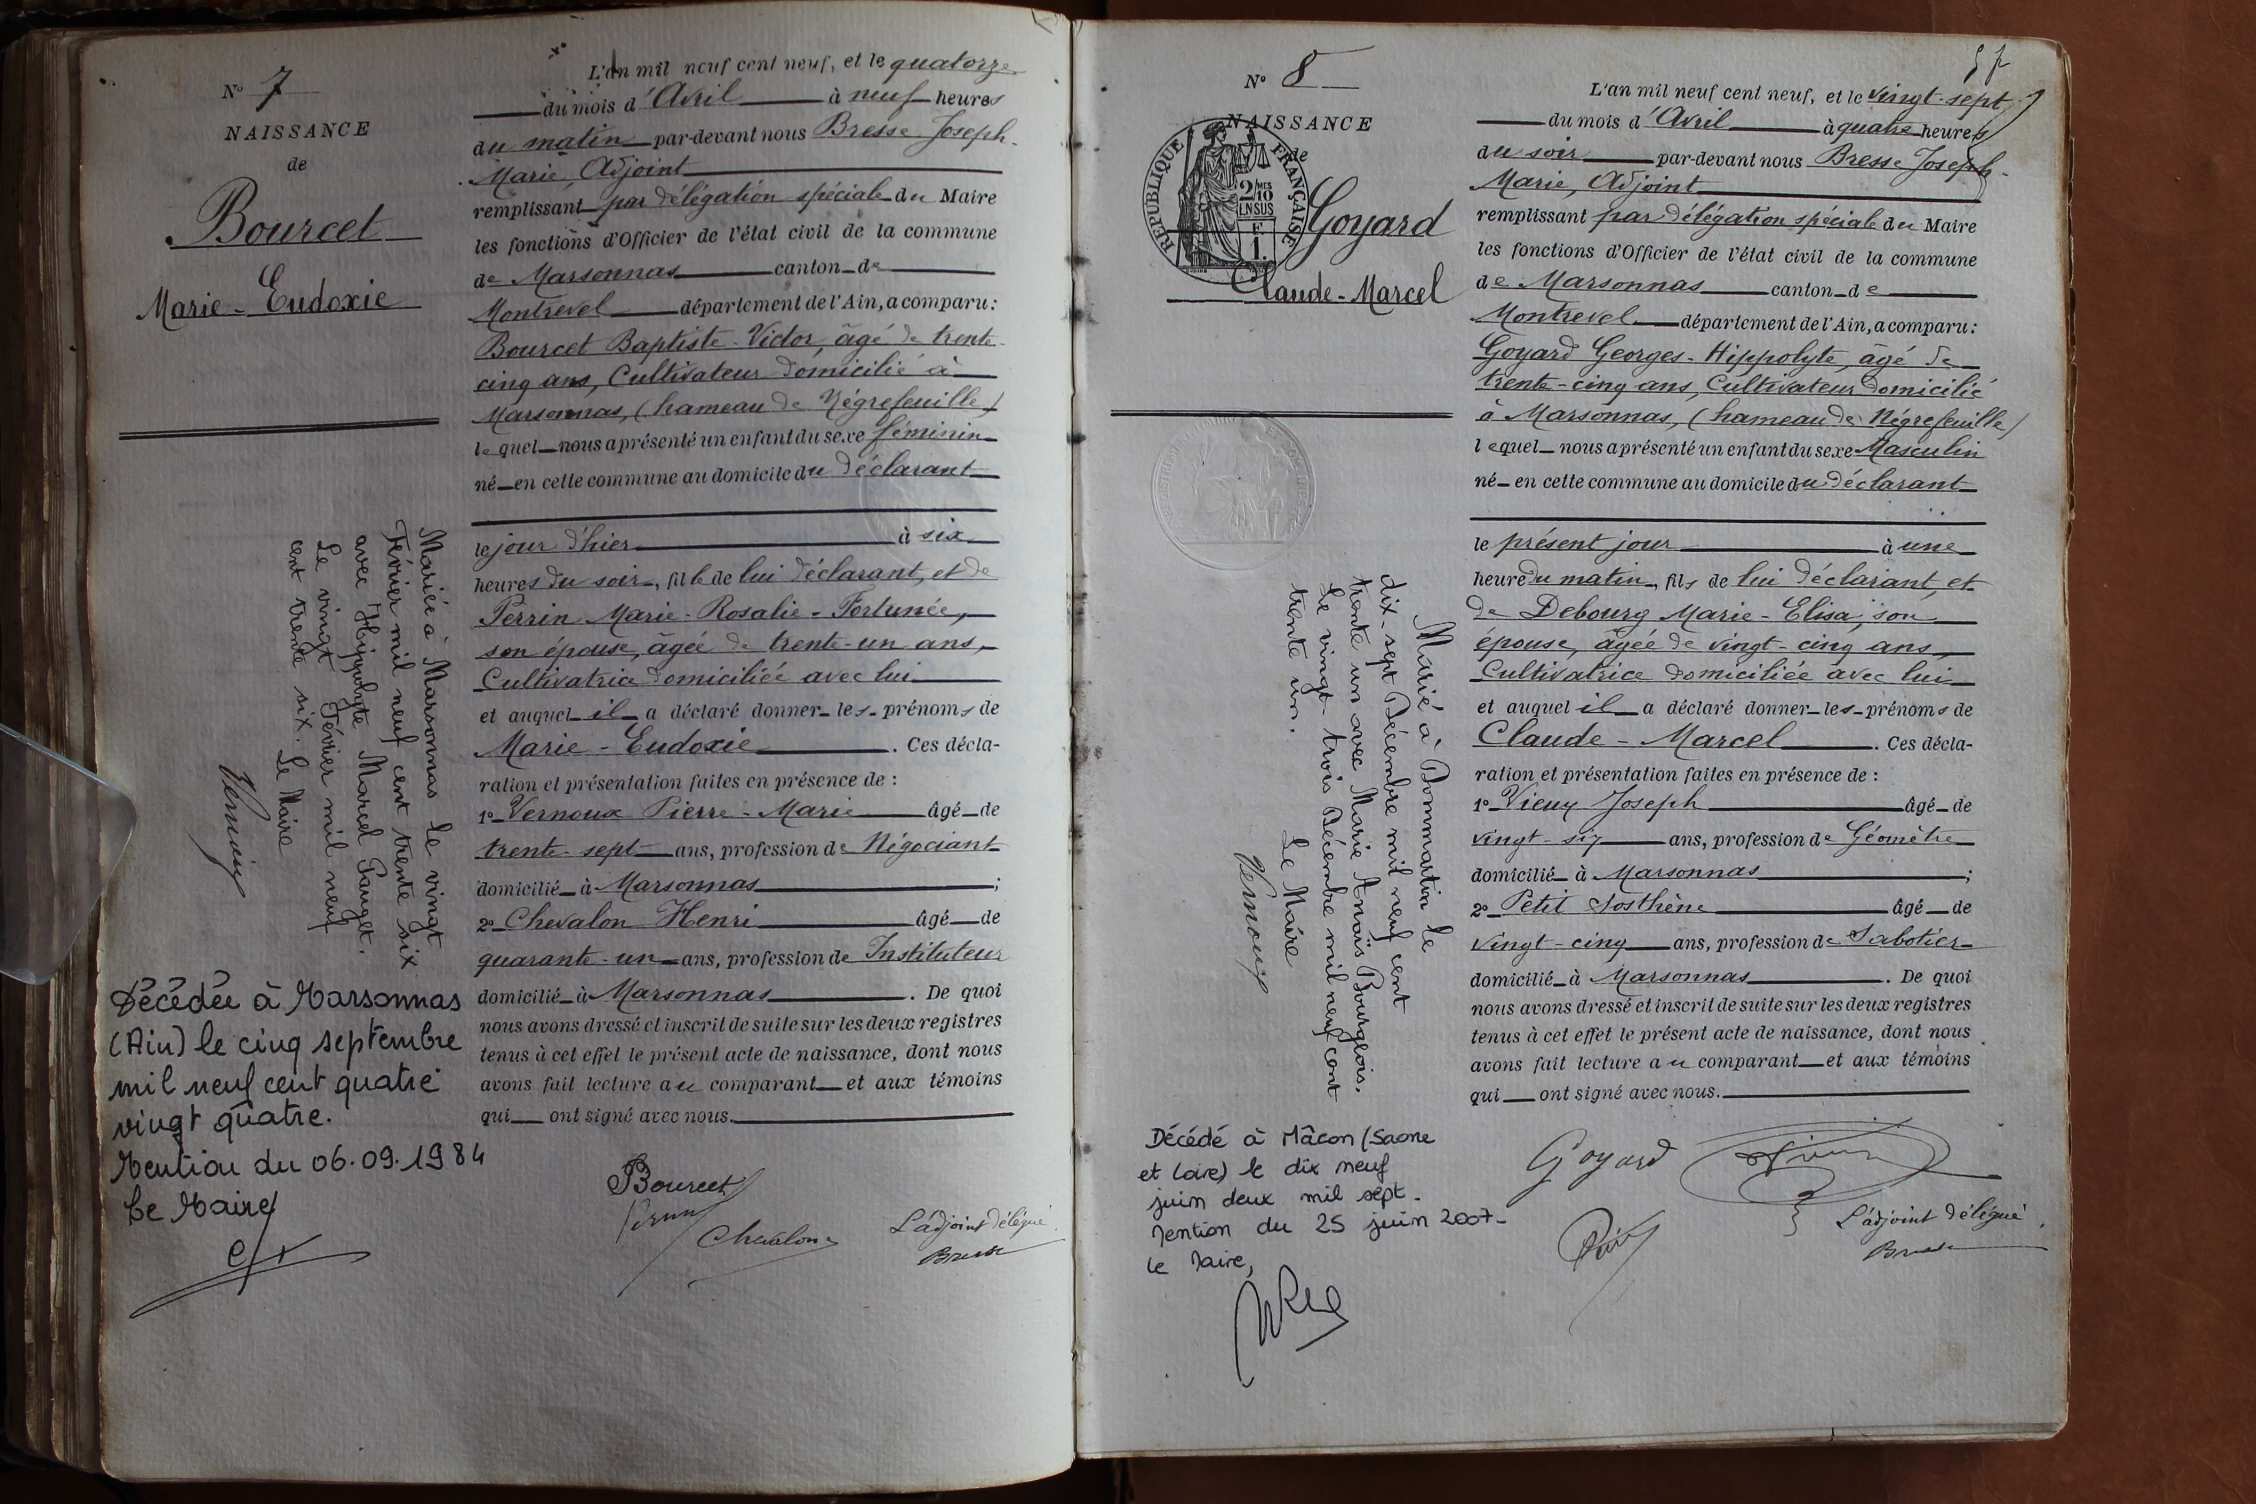 N° 7
NAISSANCE
de
Bourcet
Marie-Eudoxie
L'an mil neuf cent neuf, et le quatorze
du mois d'Avril à neuf heures
du matin par-devant nous Bresse Joseph-
Marie, Adjoint
remplissant par délégation spéciale du Maire
les fonctions d'Officier de l'état civil de la commune
de Marsonnas canton de
Montrevel département de l'Ain, a comparu:
Bourcet Baptiste-Victor, âgé de trente-
cinq ans, Cultivateur domicilié à
Marsonnas, (hameau de Négrefeuille)
lequel nous a présenté un enfant du sexe féminin
né en cette commune au domicile du déclarant
le jour d'hier à six
heures du soir, fille de lui déclarant, et de
Perrin Marie-Rosalie-Fortunée,
son épouse, âgée de trente-un ans,
Cultivatrice domiciliée avec lui
et auquel il a déclaré donner les prénoms de
Marie-Eudoxie. Ces décla-
ration et présentation faites en présence de :
1° Vernoux Pierre-Marie âgé de
trente-sept ans, profession de Négociant
domicilié à Marsonnas ;
2° Chevalon Henri âgé de
quarante-un ans, profession de Instituteur
domicilié à Marsonnas. De quoi
nous avons dressé et inscrit de suite sur les deux registres
tenus à cet effet le présent acte de naissance, dont nous
avons fait lecture au comparant et aux témoins
qui ont signé avec nous.
Bourcet
Chevalon
L'adjoint délégué
Bresse
Mariée à Marsonnas le vingt
Février mil neuf cent trente six
avec Hippolyte Marcel Pauget.
Le vingt Février mil neuf
cent trente six. Le Maire
Vernoux
Décédée à Marsonnas
(Ain) le cinq septembre
mil neuf cent quatre
vingt quatre.
Mention du 06.09.1984
Le Maire
N° 8
NAISSANCE
de
RÉPUBLIQUE FRANÇAISE
2/10
EN SUS
1F.
Goyard
Claude-Marcel
L'an mil neuf cent neuf, et le vingt-sept
du mois d'Avril à quatre heures
du soir par-devant nous Bresse Joseph-
Marie, Adjoint
remplissant par délégation spéciale du Maire
les fonctions d'Officier de l'état civil de la commune
de Marsonnas canton de
Montrevel département de l'Ain, a comparu:
Goyard Georges-Hippolyte, âgé de
trente-cinq ans, Cultivateur domicilié
à Marsonnas, (hameau de Négrefeuille)
lequel nous a présenté un enfant du sexe Masculin
né en cette commune au domicile du déclarant
le présent jour à une
heure du matin, fils de lui déclarant, et
de Debourg Marie-Elisa, son
épouse, âgée de vingt-cinq ans,
Cultivatrice domiciliée avec lui
et auquel il a déclaré donner les prénoms de
Claude-Marcel. Ces décla-
ration et présentation faites en présence de :
1° Vieux Joseph âgé de
vingt-six ans, profession de Géomètre
domicilié à Marsonnas ;
2° Petit Sosthène âgé de
vingt-cinq ans, profession de Sabotier
domicilié à Marsonnas. De quoi
nous avons dressé et inscrit de suite sur les deux registres
tenus à cet effet le présent acte de naissance, dont nous
avons fait lecture au comparant et aux témoins
qui ont signé avec nous.
Goyard
L'adjoint délégué
Bresse
Marié à Dommartin le
dix-sept Décembre mil neuf cent
trente un avec Marie Anaïs Bourgeois.
Le vingt-trois Décembre mil neuf cent
trente un. Le Maire
Vernoux
Décédé à Mâcon (Saone
et Loire) le dix neuf
juin deux mil sept.
Mention du 25 juin 2007-
Le Maire,